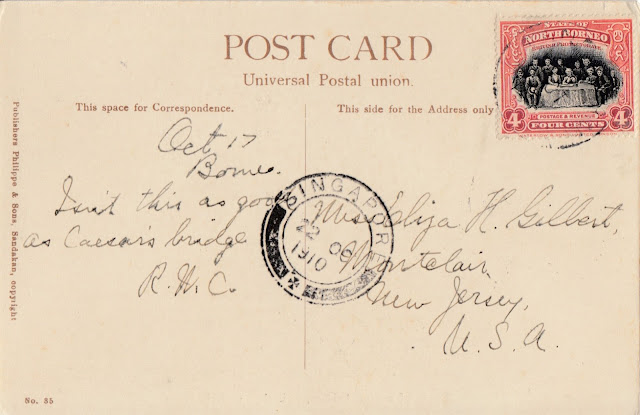 POST CARD
Universal Postal union.
This space for Correspondence.
This side for the Address only
STATE OF
NORTH BORNEO
4
4
POSTAGE & REVENUE
FOUR CENTS
Oct 17
Borneo.
Isn't this as good
as Caesar's bridge
R. W. C.
SINGAPORE
22
OC
1910
Miss Eliza H. Gilbert,
Montclair
New Jersey,
U. S. A.
Publishers Philippe & Sons, Sandakan, copyright
No. 35